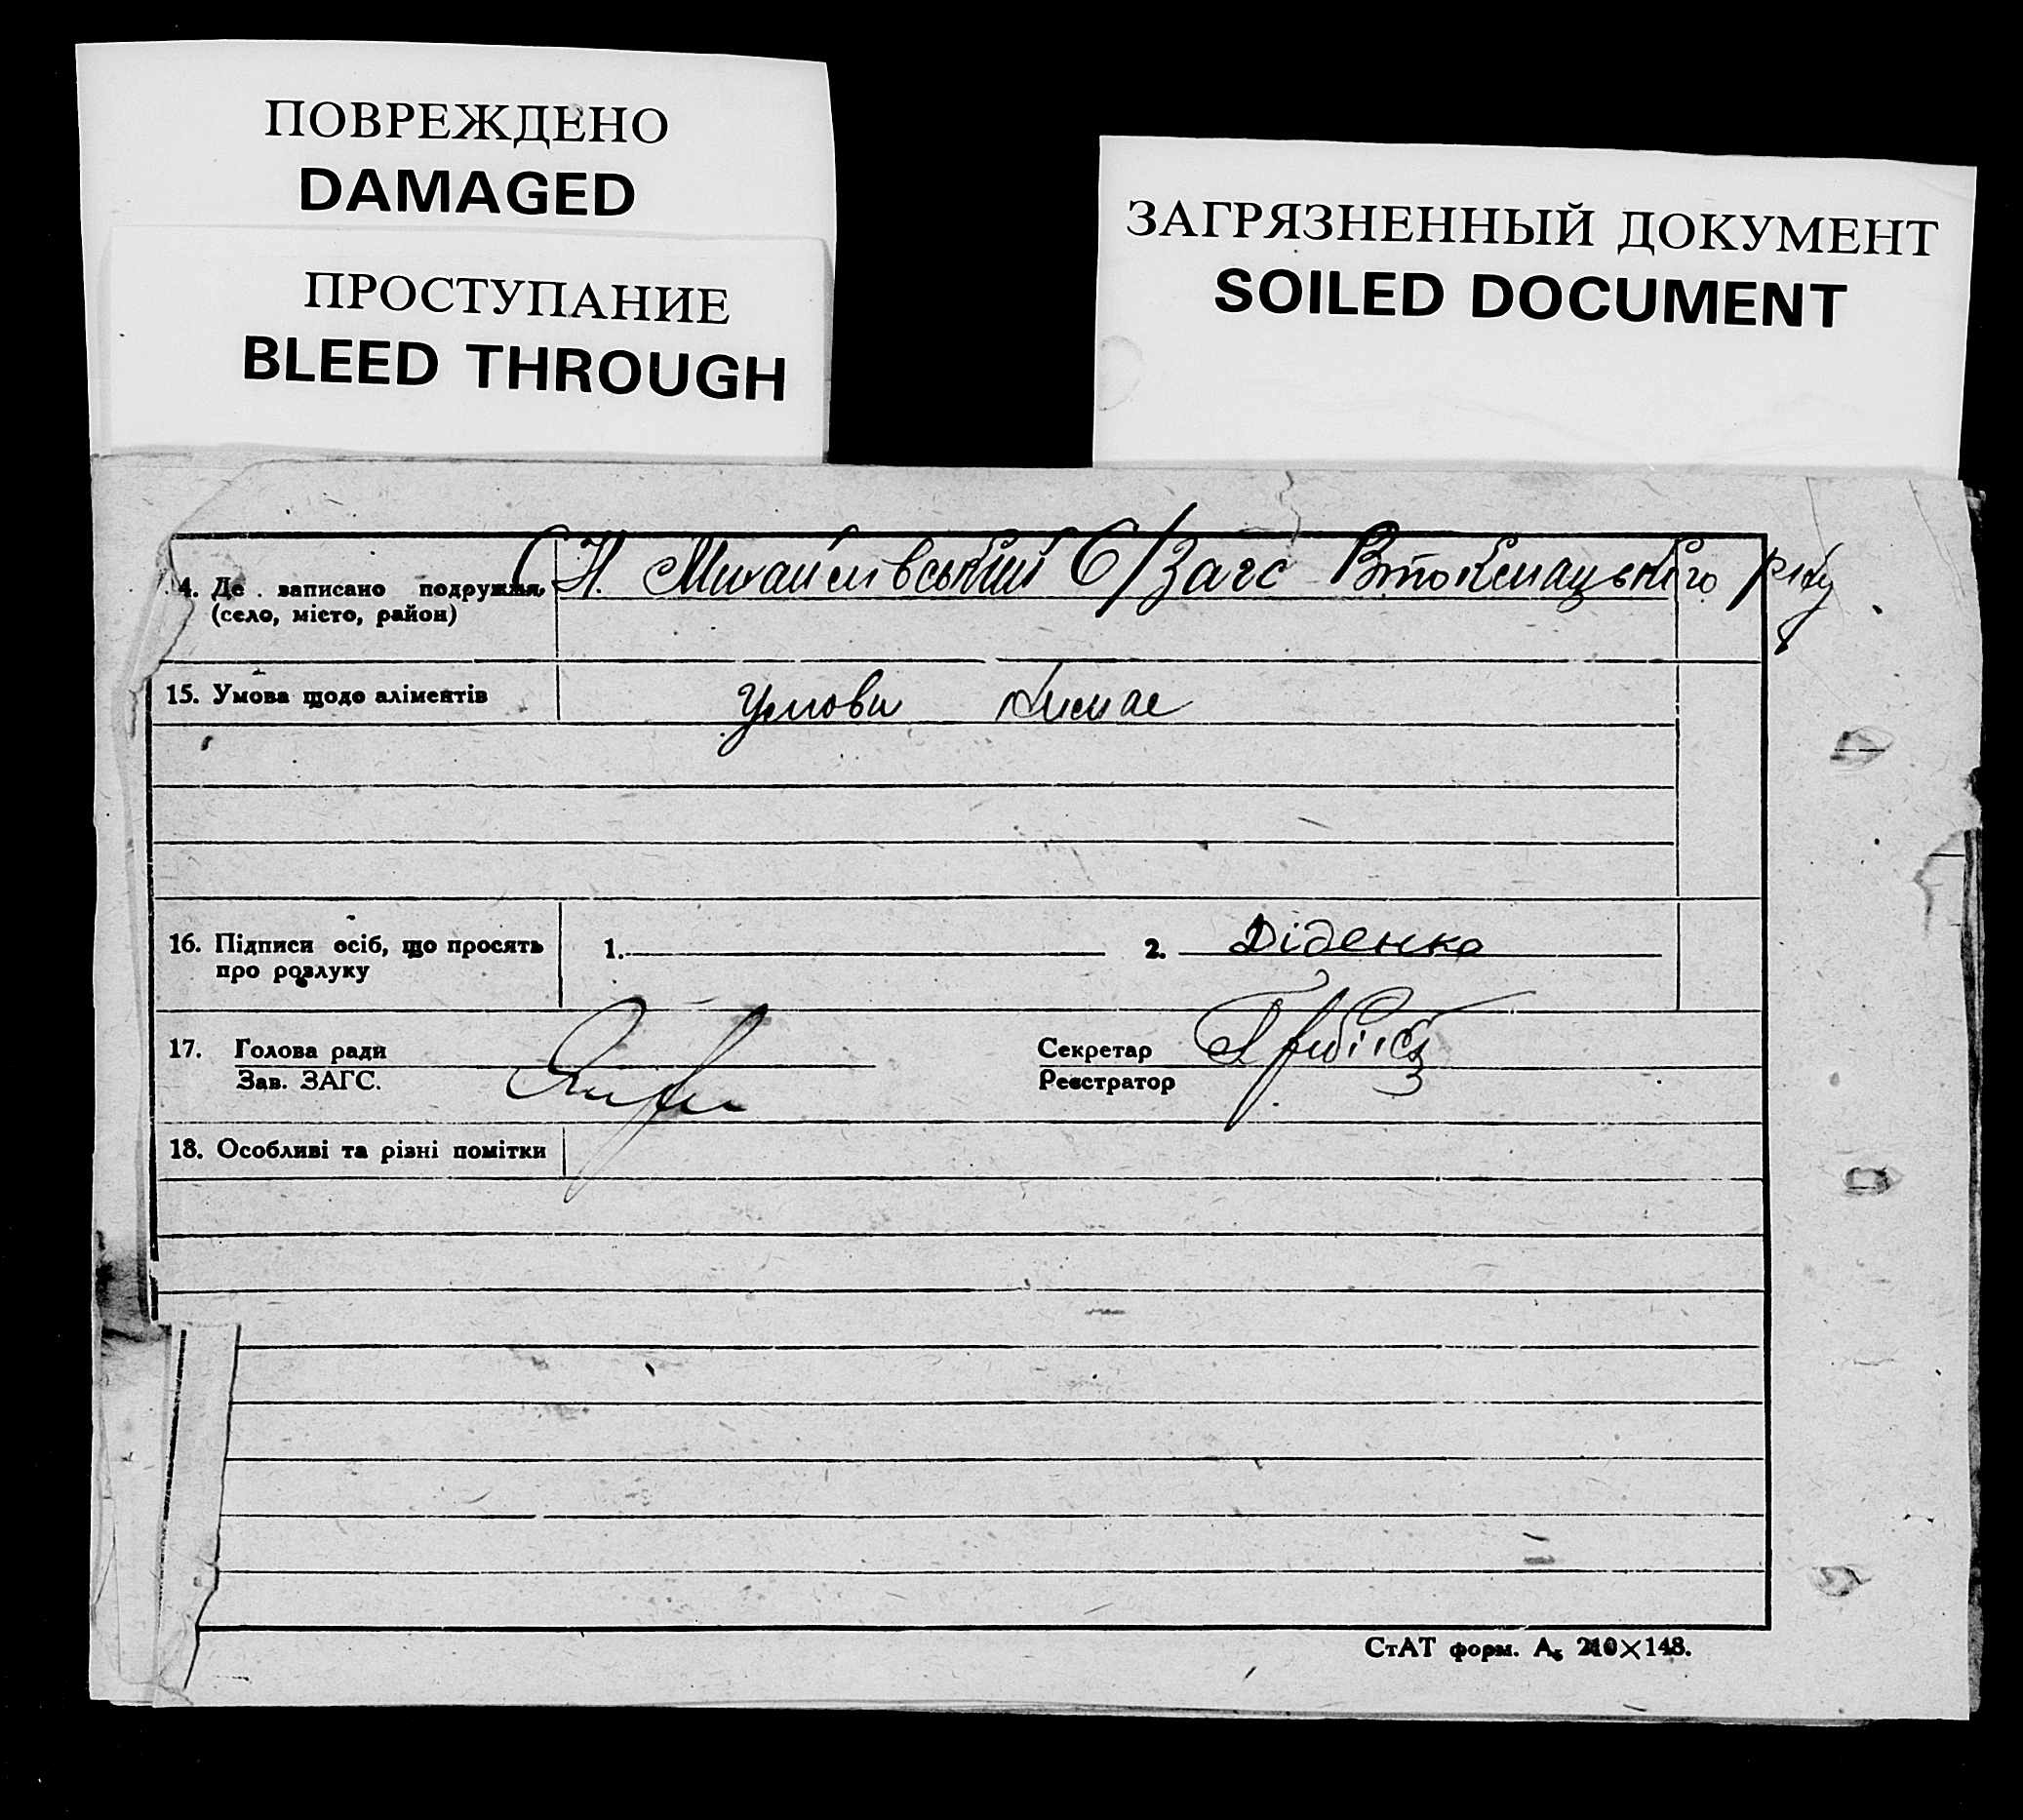 ПОВРЕЖДЕНО
DAMAGED
ПРОСТУПАНИЕ
BLEED THROUGH
ЗАГРЯЗНЕННЫЙ ДОКУМЕНТ
SOILED DOCUMENT
4. Де записано подружжя, Н. Михайлівський С/Загс
(село, місто, район)
15. Умова щодо аліментів Умови немає
16. Підписи осіб, що просять 1. 2. Діденко
про розлуку
17. Голова ради Секретар
Зав. ЗАГС. Реєстратор
18. Особливі та різні помітки
СтАТ форм. А₅ 210×148.